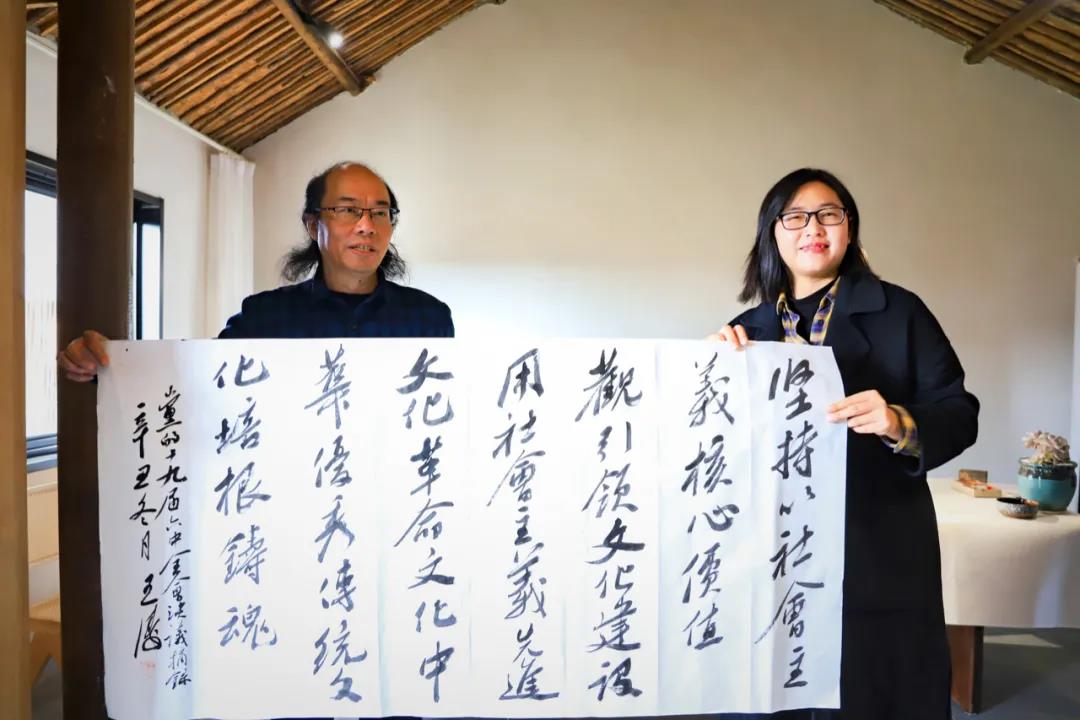 坚持以社會主
義核心價值
觀引領文化建設
用社會主義先進
文化革命文化中
華優秀傳統文
化培根鑄魂
黨的十九届六中全會决議摘錄
辛丑冬月王